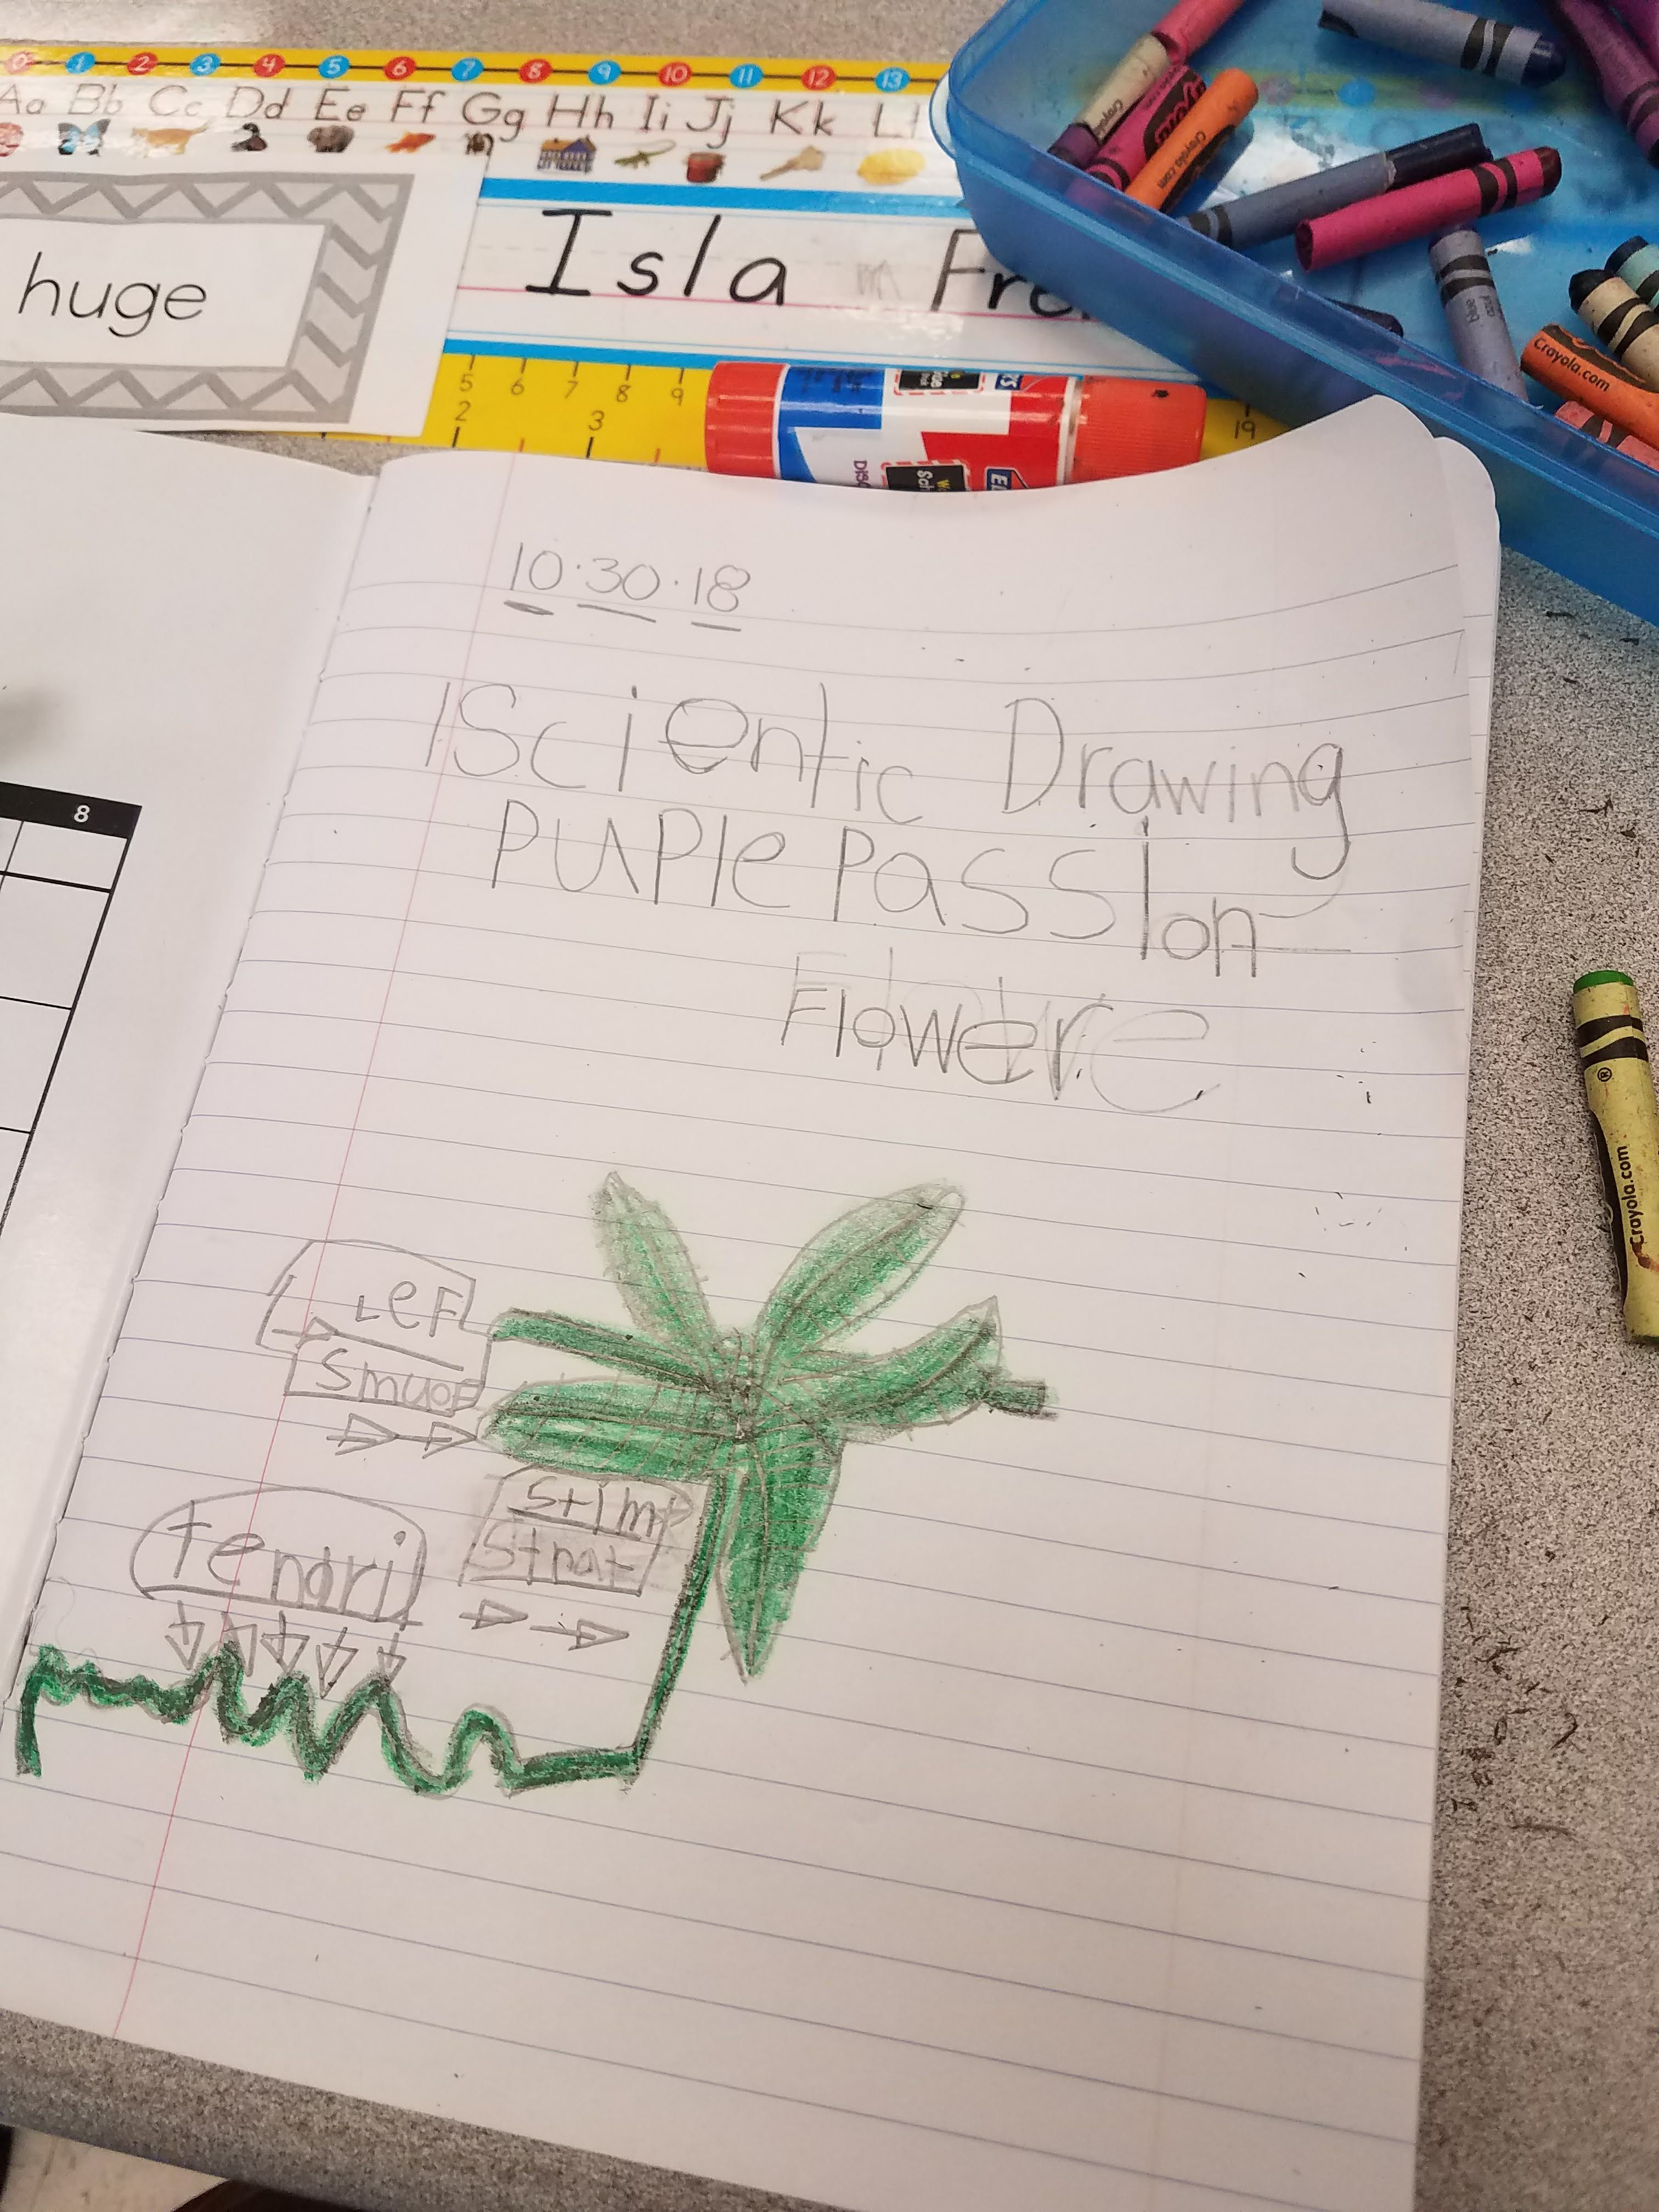 0 1 2 3 4 5 6 7 8 9 10 11 12 13
Aa Bb Cc Dd Ee Ff Gg Hh Ii Jj Kk Ll
huge
Isla Fre
5 6 7 8 9
2 3
19
Crayola.com
Crayola.com
8
10.30.18
Scientic Drawing
PUPle Passion
Flower
Lef
Smuof
Stim
Strat
tendril
Crayola.com